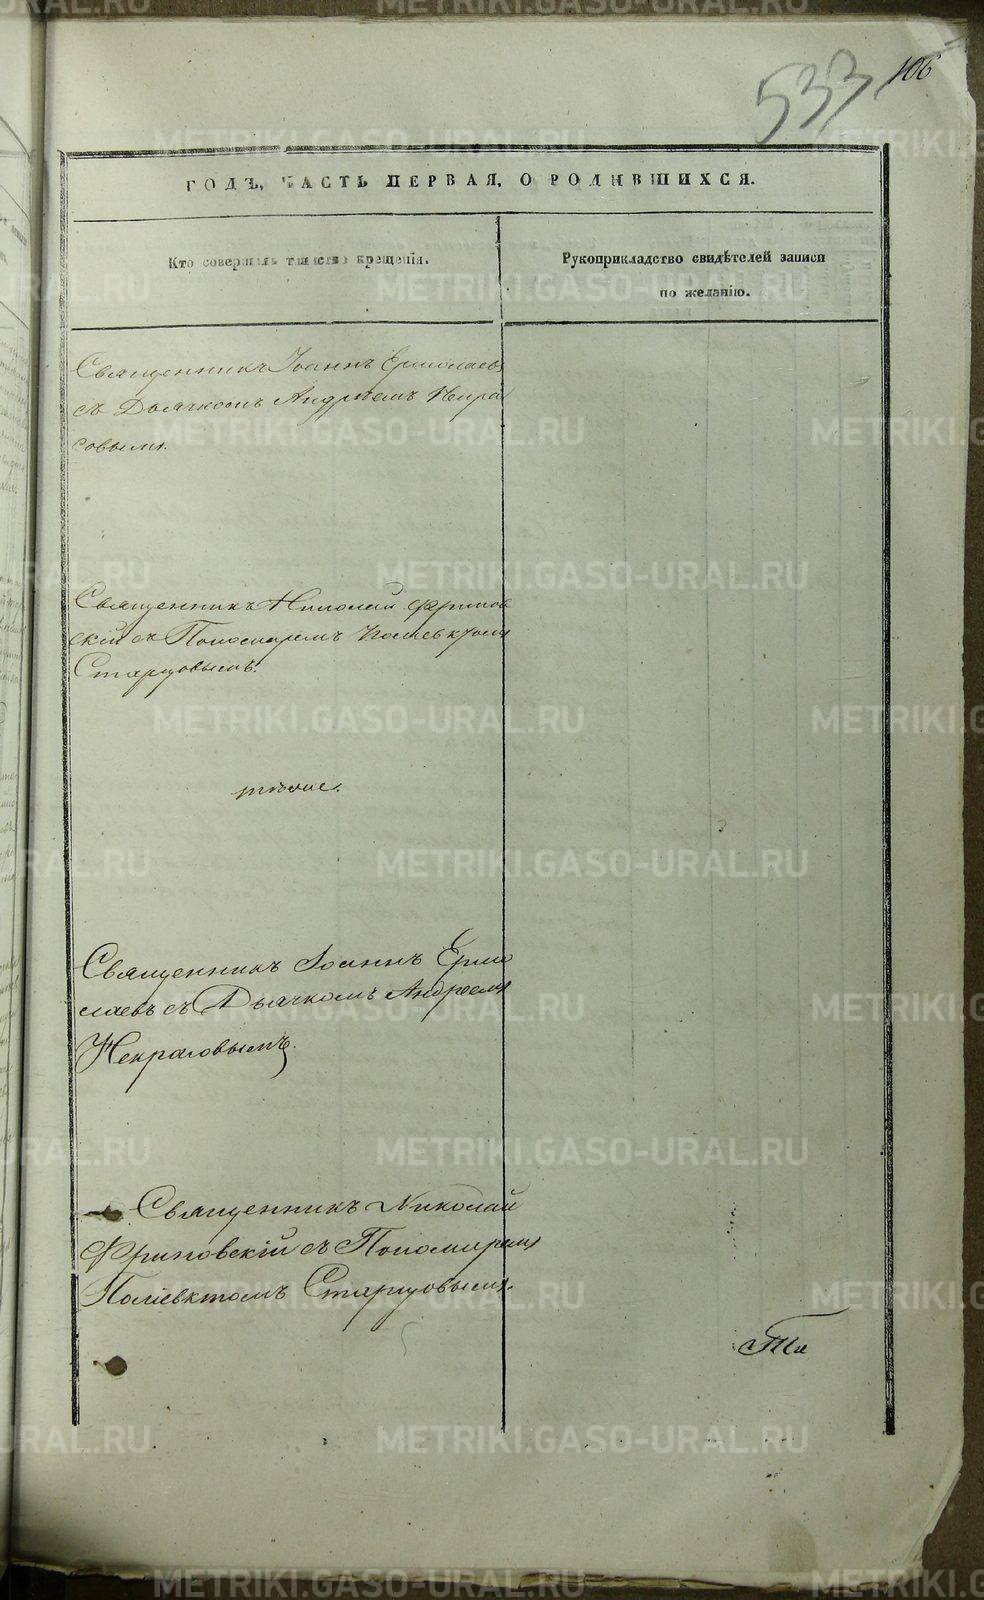 533 106
ГОДЪ, ЧАСТЬ ПЕРВАЯ, О РОДИВШИХСЯ.
Кто совершалъ таинство крещенія.
Рукоприкладство свидѣтелей записи
по желанію.
Священникъ Іоаннъ Ермолаевъ
съ Дьячкомъ Андреемъ Некра
совымъ.
Священникъ Николай Фринов
скій съ Пономаремъ Поліевктомъ
Старцовымъ.
тѣже.
Священникъ Іоаннъ Ермо
лаевъ съ Дьячкомъ Андреемъ
Некрасовымъ.
Священникъ Николай
Фриновскій съ Пономаремъ
Поліевктомъ Старцовымъ.
METRIKI.GASO-URAL.RU